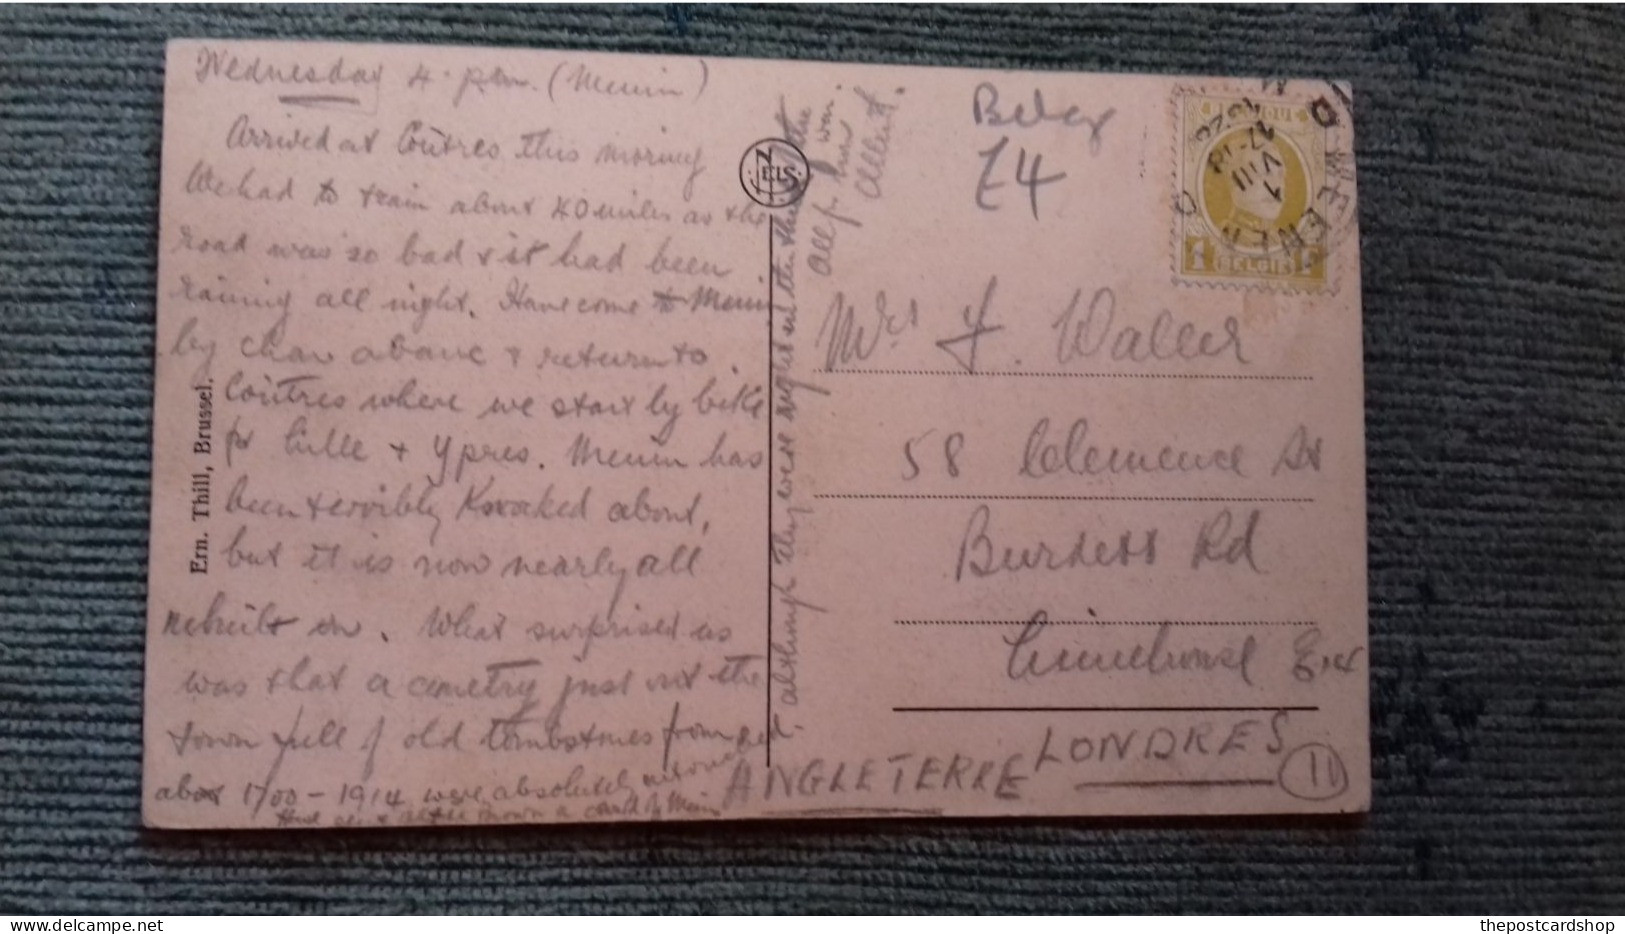 Wednesday 4. pm. (Menin)
Arrived at Coutres this morning
We had to train about 40 miles as the
road was so bad & it had been
raining all night. Have come to Menin
by char abanc & return to
Coutres where we start by bike
for Lille & Ypres. Menin has
been terribly knocked about,
but it is now nearly all
rebuilt on. What surprised us
was that a cemetry just out the
town full of old tombstones from
about 1700 - 1914 were absolutely
a card of Menin
although they were right in the
All
Albert.
Ern. Thill, Brussel.
NELS
Belg
£4
1 BELGIE 1
MEENEN
1 VIII
17-18
Mrs F. Waller
58 Clemence St
Burdett Rd
Limehouse E.14
LONDRES
ANGLETERRE
11
thepostcardshop
www.mypostcardshop.com